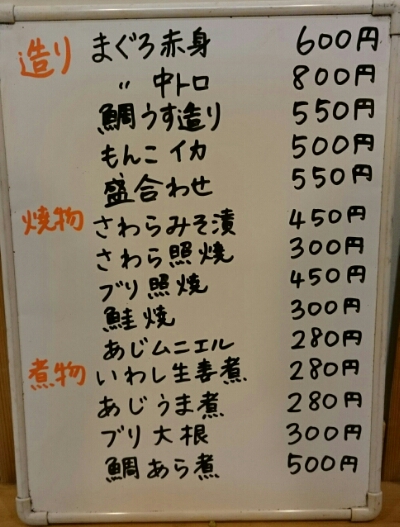 造り まぐろ赤身 600円
〃 中トロ 800円
鯛うす造り 550円
もんこイカ 500円
盛合わせ 550円
焼物 さわらみそ漬 450円
さわら照焼 300円
ブリ照焼 450円
鮭焼 300円
あじムニエル 280円
煮物 いわし生姜煮 280円
あじうま煮 280円
ブリ大根 300円
鯛あら煮 500円